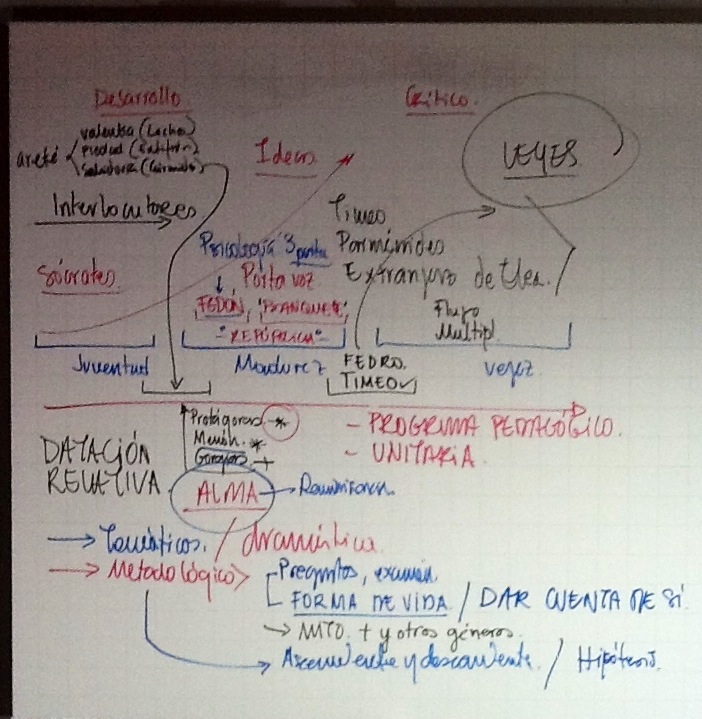 Desarrollo
Crítico.
valentía (Laches)
areté piedad (Eutifrón)
Ideas
LEYES
Interlocutores
Timeo
Psicología 3 partes
Parménides
Sócrates.
Portavoz
Extranjero de Elea.
FEDÓN, BANQUETE,
Flujo
"REPÚBLICA"
Multipl.
Juventud
Madurez
FEDRO.
vejez
TIMEO
Protágoras *
- PROGRAMA PEDAGÓGICO.
Menón. *
DATACIÓN
Gorgias +
- UNITARIA.
RELATIVA
ALMA
Reminiscencia.
Temáticos. / dramática
Metodológico
Preguntas, examen
FORMA DE VIDA / DAR CUENTA DE SÍ
MITO. + y otros géneros.
Ascendente y descendente. / Hipótesis.